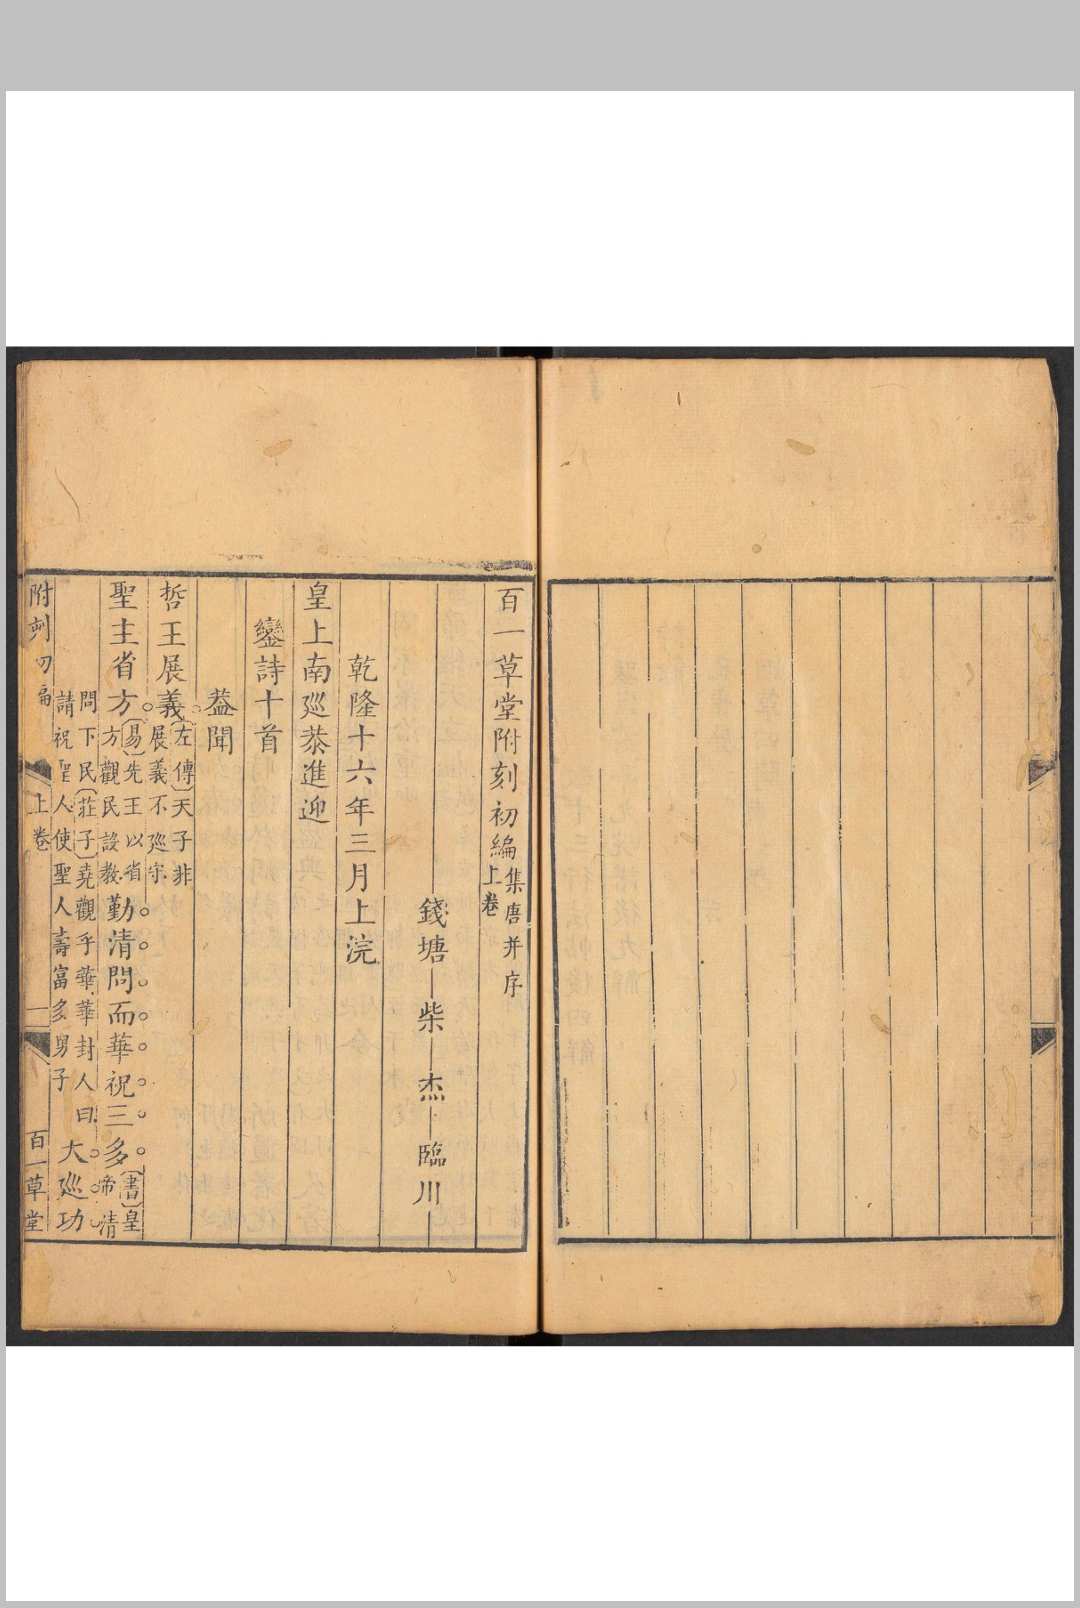 百一草堂附刻初編上卷集唐并序
錢塘柴杰臨川
乾隆十六年三月上浣
皇上南巡恭進迎
鑾詩十首
葢聞
哲王展義左傳天子非展義不巡守
聖主省方易先王以省方觀民設教勤清問而華祝三多書皇帝清
問下民莊子堯觀乎華華封人曰請祝聖人使聖人壽富多男子大巡功
附刻初編 上卷 一 百一草堂